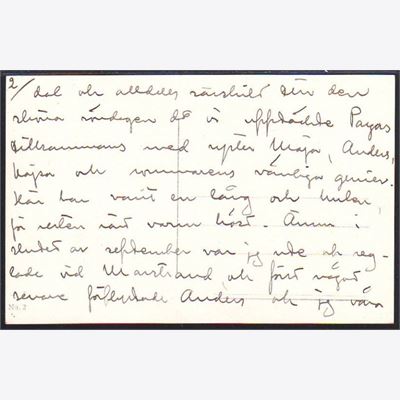 2/
dal och alldeles särskilt för den
sköna söndagen då vi upptäckte Pagas
tillsammans med syster Maja, Anders,
Kajsa och sommarens vänliga genier.
Här har varit en lång och mulen,
för resten rätt varm höst. Ännu i
slutet av september var jag ute och seg-
lade vid Marstrand och först något
senare förflyttade Anders och jag våra
No. 2